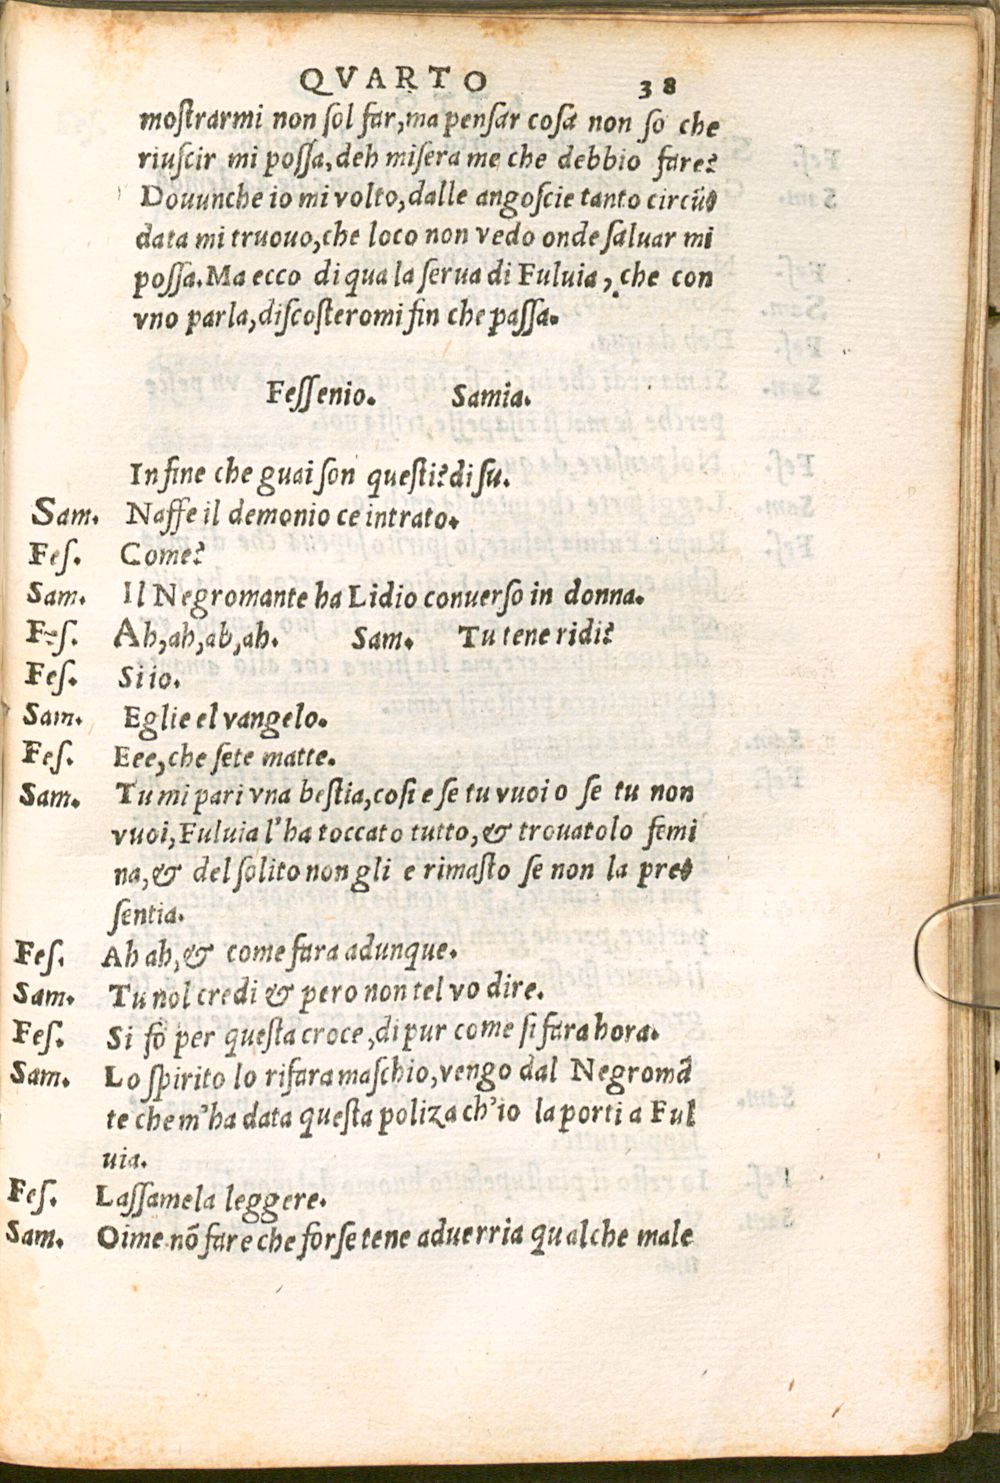 QVARTO 38
mostrarmi non sol far, ma pensar cosa non so che
riuscir mi possa, deh misera me che debbio fare?
Douunche io mi volto, dalle angoscie tanto circũ
data mi truouo, che loco non vedo onde saluar mi
possa. Ma ecco di qua la serua di Fuluia, che con
vno parla, discosteromi fin che passa.
Fessenio. Samia.
In fine che guai son questi? di su.
Sam. Naffe il demonio ce intrato.
Fes. Come?
Sam. Il Negromante ha Lidio conuerso in donna.
Fes. Ah, ah, ah, ah. Sam. Tu tene ridi?
Fes. Si io.
Sam. Eglie el vangelo.
Fes. Eee, che sete matte.
Sam. Tu mi pari vna bestia, cosi e se tu vuoi o se tu non
vuoi, Fuluia l'ha toccato tutto, & trouatolo femi
na, & del solito non gli e rimasto se non la pre
sentia.
Fes. Ah ah, & come fara adunque.
Sam. Tu nol credi & pero non tel vo dire.
Fes. Si fo per questa croce, di pur come si fara hora.
Sam. Lo spirito lo rifara maschio, vengo dal Negromã
te che m'ha data questa poliza ch'io la porti a Ful
uia.
Fes. Lassamela leggere.
Sam. Oime nõ fare che forse tene aduerria qualche male